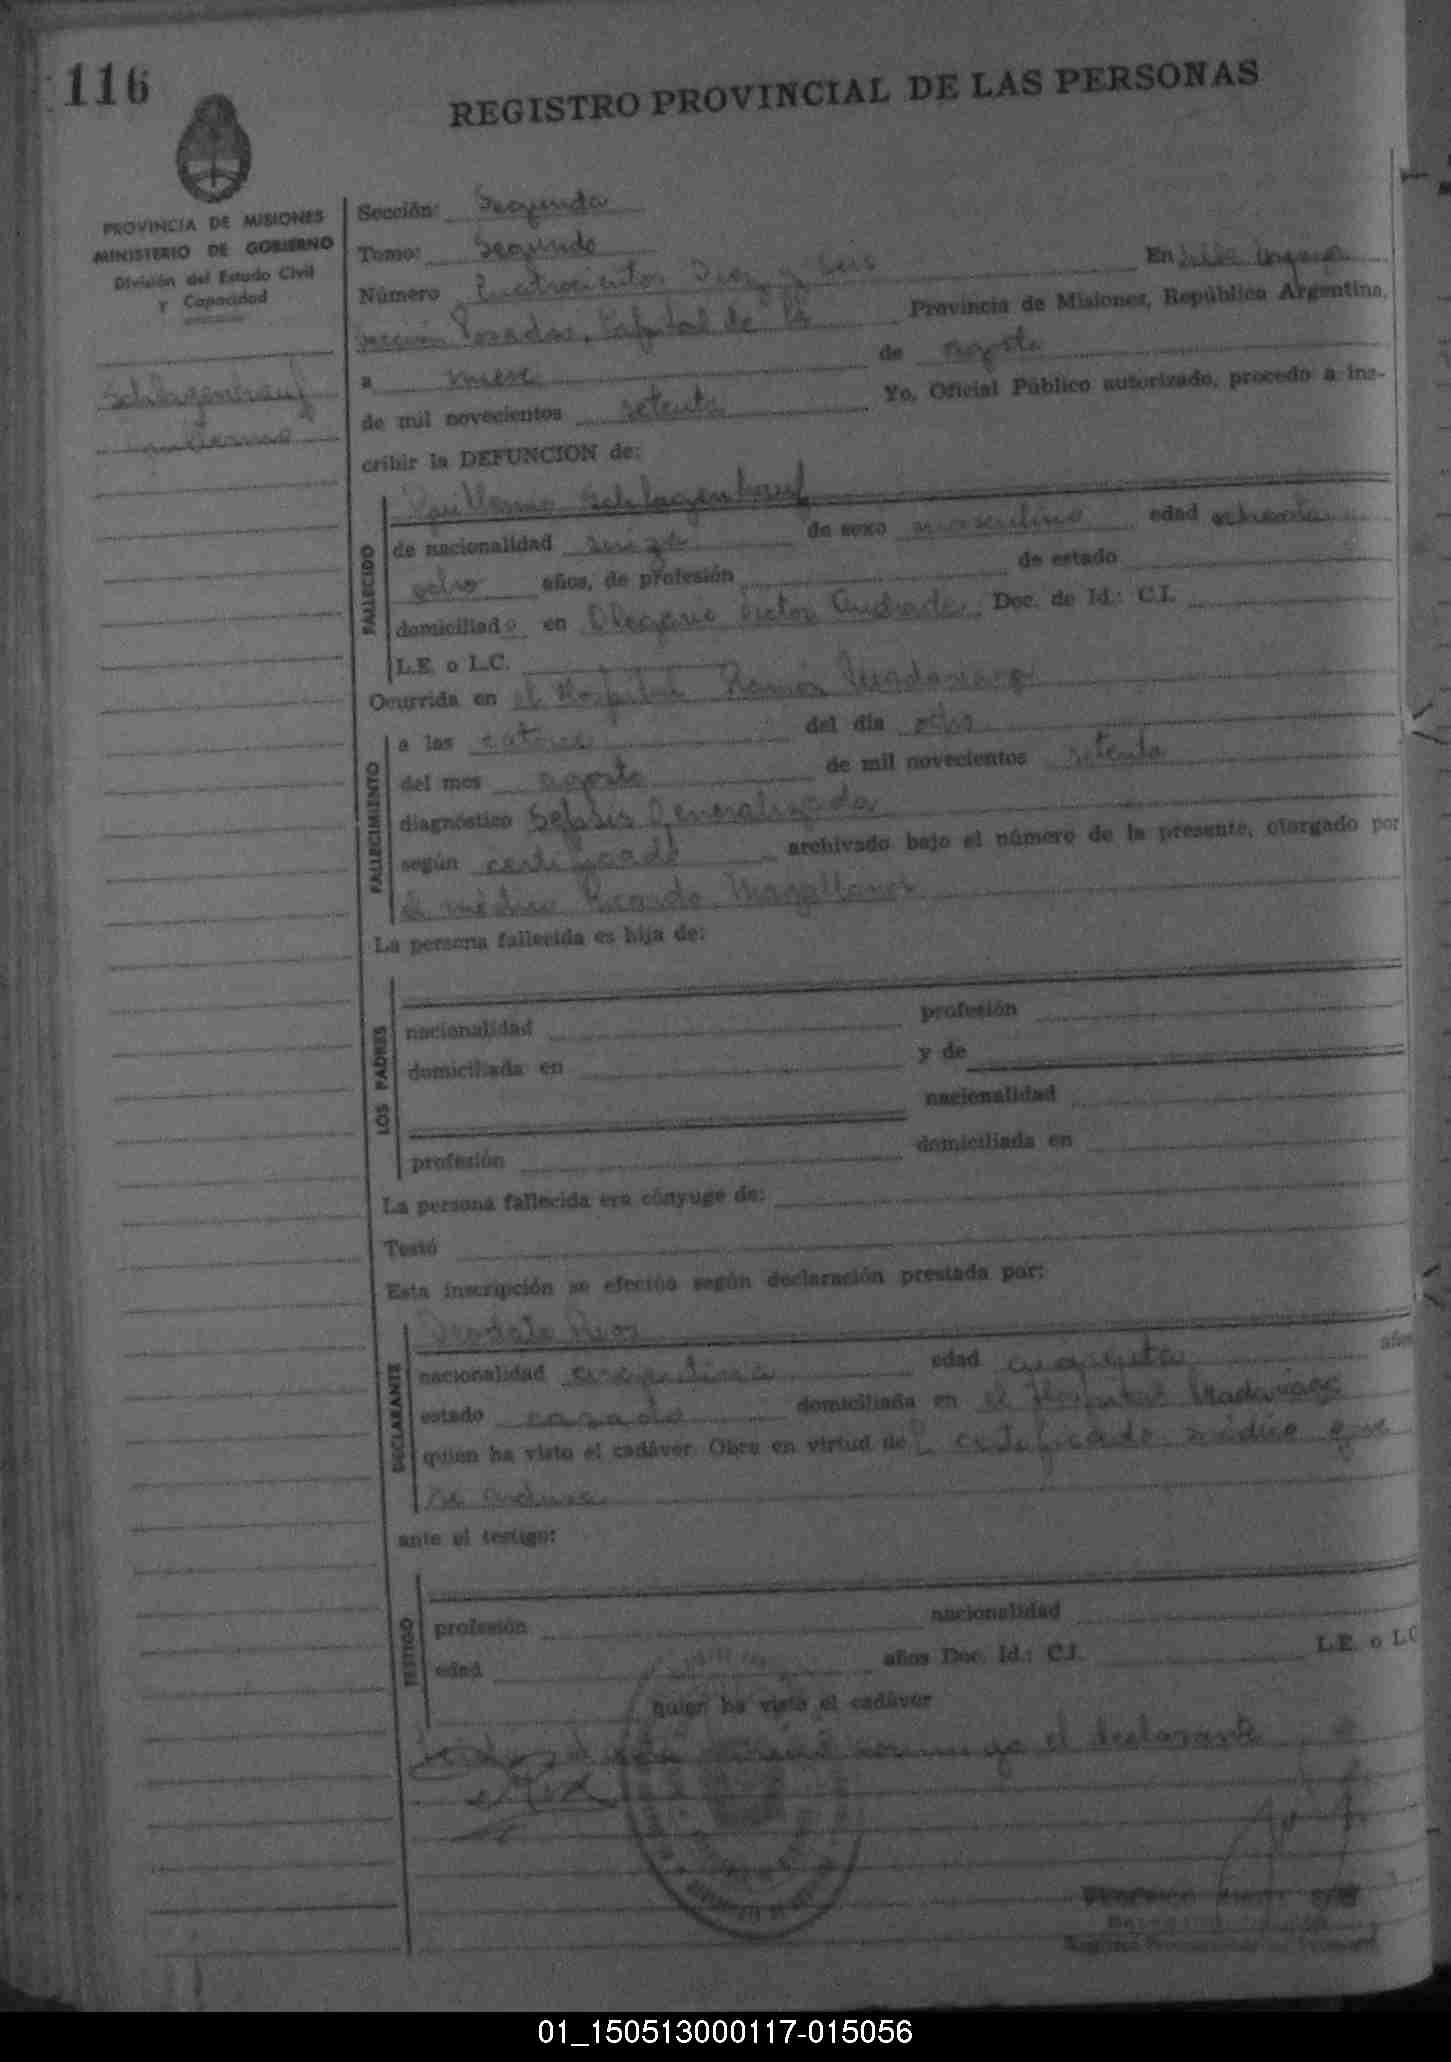 116
REGISTRO PROVINCIAL DE LAS PERSONAS
PROVINCIA DE MISIONES
MINISTERIO DE GOBIERNO
División del Estado Civil
Y Capacidad
Schlagenhauf
Guillermo
Sección: Segunda
Tomo: Segundo
Número Cuatrocientos Diez y Seis En Villa Urquiza
sección Posadas, Capital de la Provincia de Misiones, República Argentina,
a once de agosto
de mil novecientos setenta Yo, Oficial Público autorizado, procedo a ins-
cribir la DEFUNCION de:
FALECIDO
Guillermo Schlagenhauf
de nacionalidad suiza de sexo masculino edad ochenta
ocho años, de profesión de estado
domiciliado en Olegario Victor Andrade Doc. de Id.: C.I.
L.E. o L.C.
Ocurrida en el Hospital Ramón Madariaga
FALLECIMIENTO
a las catorce del día ocho
del mes agosto de mil novecientos setenta
diagnóstico Sepsis Generalizada
según certificado archivado bajo el número de la presente, otorgado por
el médico Ricardo Magallanes
La persona fallecida es hija de:
LOS PADRES
nacionalidad profesión
domiciliada en y de
nacionalidad
profesión domiciliada en
La persona fallecida era cónyuge de:
Testó
Esta inscripción se efectúa según declaración prestada por:
DECLARANTE
Rios
nacionalidad argentina edad cuarenta años
estado casado domiciliada en el Hospital Madariaga
quien ha visto el cadáver. Obra en virtud del certificado médico que
se archiva
ante el testigo:
TESTIGO
profesión nacionalidad
edad años Doc. Id.: C.I. L.E. o L.C
quien ha visto el cadáver
el declarante
01_150513000117-015056